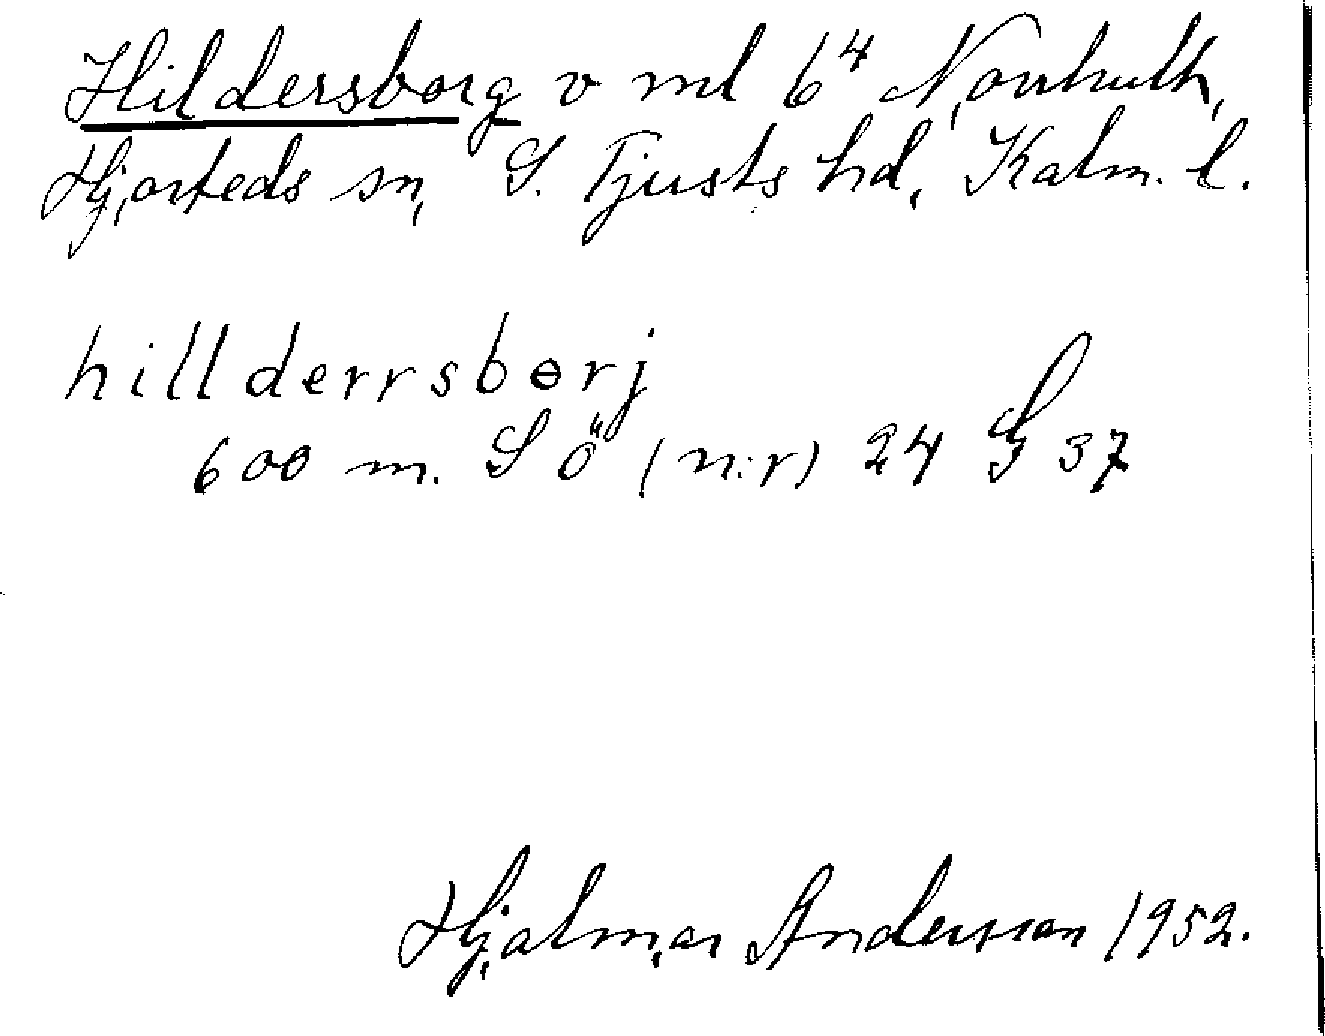 Hildersborg v ml 6⁴ Norrhult,
Hjorteds sn, S. Tjusts hd, Kalm. l.
hillderrsbɵrj
600 m. S ö (n:r) 24 G 37
Hjalmar Andersson 1952.